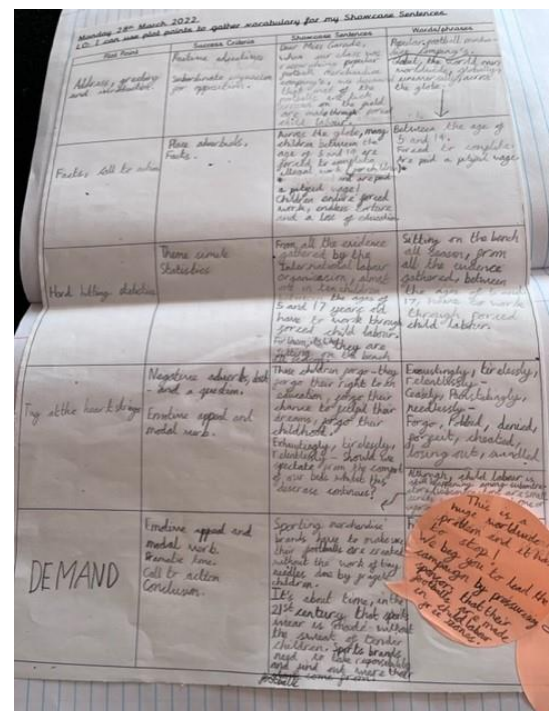 Monday 28th March 2022
LO: I can use plot points to gather vocabulary for my Showcase Sentences
Plot Point
Success Criteria
Showcase Sentences
Words/phrases
Address, greeting
and introduction.
Feature adjectives
Subordinate conjunction
for opposition.
Dear Miss
when our class was
popular
football merchandise
that most of the
footballs
on the field
are made through forced
child labour.
Popular, football
the world over
worldwide, globally,
universally, across
the globe.
Facts, call to action
Place adverbials,
Facts.
Across the globe, many
children between the
age of 5 and 14 are
forced to complete
illegal work
not are paid
a pitiful wage!
Children endure forced
work, endless torture
and a loss of education
Between the age of
5 and 14.
Forced to complete.
Are paid a pitiful wage.
Hard hitting statistics
Theme simile
Statistics
From all the evidence
gathered by the
International labour
organisation, almost
one in ten children
the ages of
5 and 17 years old
have to work through
forced child labour.
they are
sitting on the bench
all season.
Sitting on the bench
all season, from
all the evidence
gathered, between
the ages of 5 and
17, have to work
through forced
child labour.
Tug at the heart strings
Negative adverbs, dash
- and a question.
Emotive appeal and
modal verb.
These children forgo - they
forgo their right to an
education, forgo their
chance to fulfil their
dreams, forgo their
childhood.
Exhaustingly, tirelessly,
relentlessly - should we
spectate from the comfort
of our beds whilst this
continues?
Exhaustingly, tirelessly,
relentlessly -
needlessly -
Forgo, robbed, denied,
forfeit, cheated,
losing out, swindled
Although child labour is
DEMAND
Emotive appeal and
modal verb.
Dramatic tone.
Call to action
Conclusion.
Sporting merchandise
brands have to make sure
their footballs are created
without the work of tiny
needles done by fragile
children.
It's about time, in the
21st century that sports
wear is made without
the sweat of tender
children. Sports brands
need to take responsibility
and find out were their
come from!
This is a
huge worldwide
problem and it has
to stop!
We beg you to lead the
campaign by pressuring
sponsors that their
footballs are made